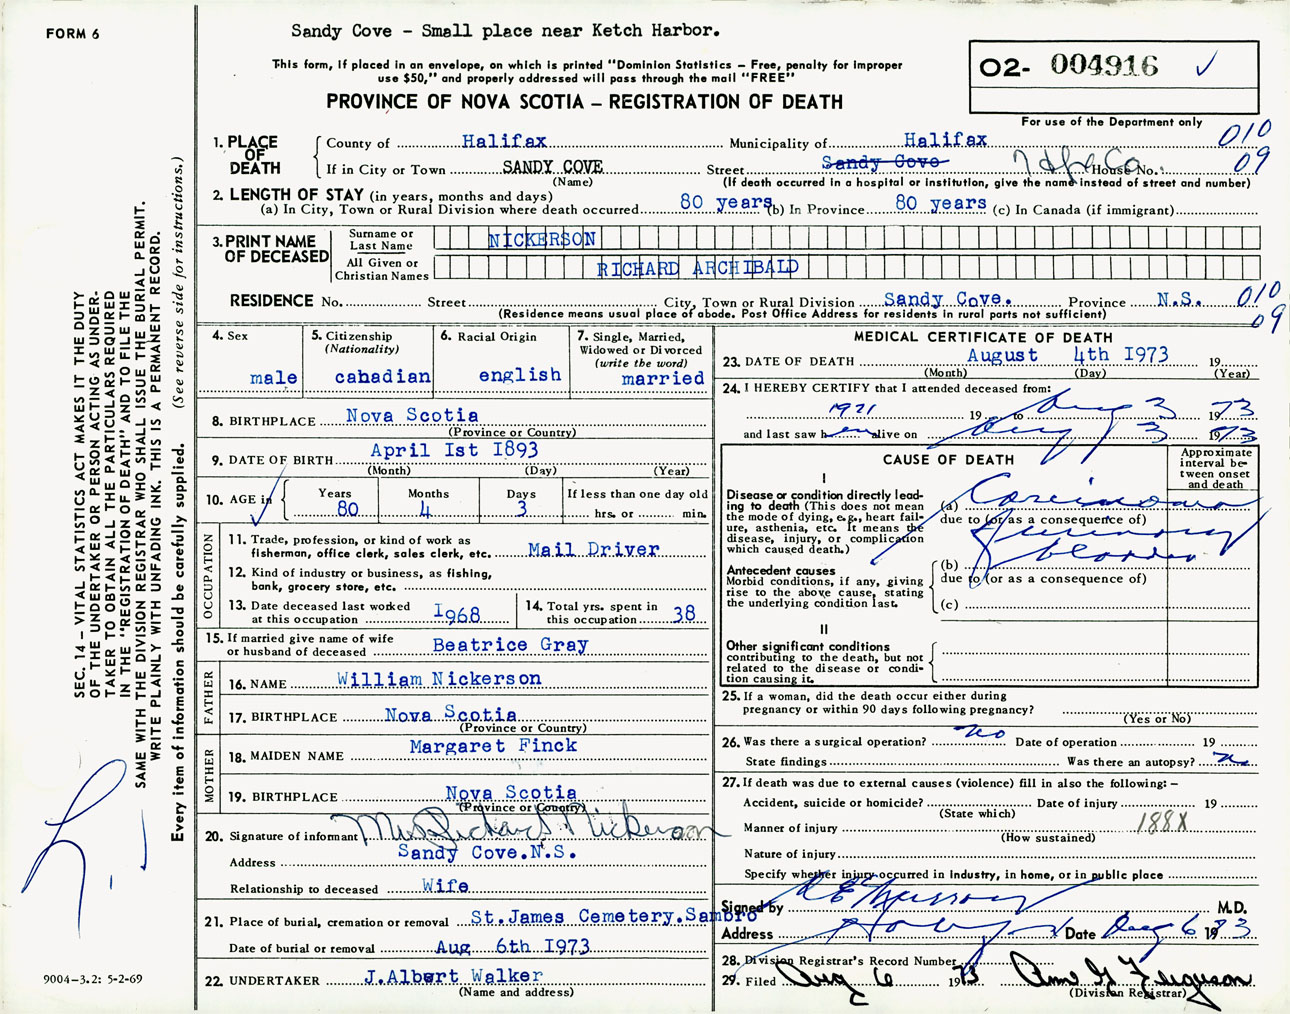 FORM 6
Sandy Cove - Small place near Ketch Harbor.
This form, if placed in an envelope, on which is printed "Dominion Statistics – Free, penalty for improper
use $50," and properly addressed will pass through the mail "FREE"
PROVINCE OF NOVA SCOTIA – REGISTRATION OF DEATH
O2- 004916 ✓
For use of the Department only
SEC. 14 – VITAL STATISTICS ACT MAKES IT THE DUTY
OF THE UNDERTAKER OR PERSON ACTING AS UNDER-
TAKER TO OBTAIN ALL THE PARTICULARS REQUIRED
IN THE "REGISTRATION OF DEATH" AND TO FILE THE
SAME WITH THE DIVISION REGISTRAR WHO SHALL ISSUE THE BURIAL PERMIT.
WRITE PLAINLY WITH UNFADING INK. THIS IS A PERMANENT RECORD.
Every item of information should be carefully supplied. (See reverse side for instructions.)
1. PLACE OF DEATH County of Halifax Municipality of Halifax 010
If in City or Town SANDY COVE Street Sandy Cove House No. 09
(Name) (If death occurred in a hospital or institution, give the name instead of street and number)
2. LENGTH OF STAY (in years, months and days)
(a) In City, Town or Rural Division where death occurred 80 years (b) In Province 80 years (c) In Canada (if immigrant)
3. PRINT NAME OF DECEASED
Surname or Last Name NICKERSON
All Given or Christian Names RICHARD ARCHIBALD
RESIDENCE No. Street City, Town or Rural Division Sandy Cove. Province N.S. 010
(Residence means usual place of abode. Post Office Address for residents in rural parts not sufficient) 09
4. Sex male
5. Citizenship (Nationality) cahadian
6. Racial Origin english
7. Single, Married, Widowed or Divorced (write the word) married
8. BIRTHPLACE Nova Scotia
(Province or Country)
9. DATE OF BIRTH April 1st 1893
(Month) (Day) (Year)
10. AGE in Years 80 Months 4 Days 3 If less than one day old
hrs. or min.
OCCUPATION
11. Trade, profession, or kind of work as
fisherman, office clerk, sales clerk, etc. Mail Driver
12. Kind of industry or business, as fishing,
bank, grocery store, etc.
13. Date deceased last worked at this occupation 1968
14. Total yrs. spent in this occupation 38
15. If married give name of wife
or husband of deceased Beatrice Gray
FATHER
16. NAME William Nickerson
17. BIRTHPLACE Nova Scotia
(Province or Country)
MOTHER
18. MAIDEN NAME Margaret Finck
19. BIRTHPLACE Nova Scotia
(Province or Country)
20. Signature of informant Mrs Richard Nickerson
Address Sandy Cove.N.S.
Relationship to deceased Wife
21. Place of burial, cremation or removal St.James Cemetery.Sambro
Date of burial or removal Aug 6th 1973
22. UNDERTAKER J.Albert Walker
(Name and address)
9004–3.2: 5-2-69
MEDICAL CERTIFICATE OF DEATH
23. DATE OF DEATH August 4th 1973 19
(Month) (Day) (Year)
24. I HEREBY CERTIFY that I attended deceased from:
1921 19 to Aug 3 1973
and last saw h alive on Aug 3 1973
CAUSE OF DEATH
Approximate interval be-tween onset and death
I
Disease or condition directly lead-
ing to death (This does not mean
the mode of dying, e.g., heart fail-
ure, asthenia, etc. It means the
disease, injury, or complication
which caused death.)
(a) Carcinoma
due to (or as a consequence of)
urinary
bladder
(b)
due to (or as a consequence of)
(c)
Antecedent causes
Morbid conditions, if any, giving
rise to the above cause, stating
the underlying condition last.
II
Other significant conditions
contributing to the death, but not
related to the disease or condi-
tion causing it.
25. If a woman, did the death occur either during
pregnancy or within 90 days following pregnancy?
(Yes or No)
26. Was there a surgical operation? no Date of operation 19
State findings Was there an autopsy? no
27. If death was due to external causes (violence) fill in also the following: –
Accident, suicide or homicide? Date of injury 19
(State which)
Manner of injury 188X
(How sustained)
Nature of injury
Specify whether injury occurred in industry, in home, or in public place
Signed by M.D.
Address Date Aug 6 19
28. Division Registrar's Record Number
29. Filed Aug 6 1973 Ferguson
(Division Registrar)